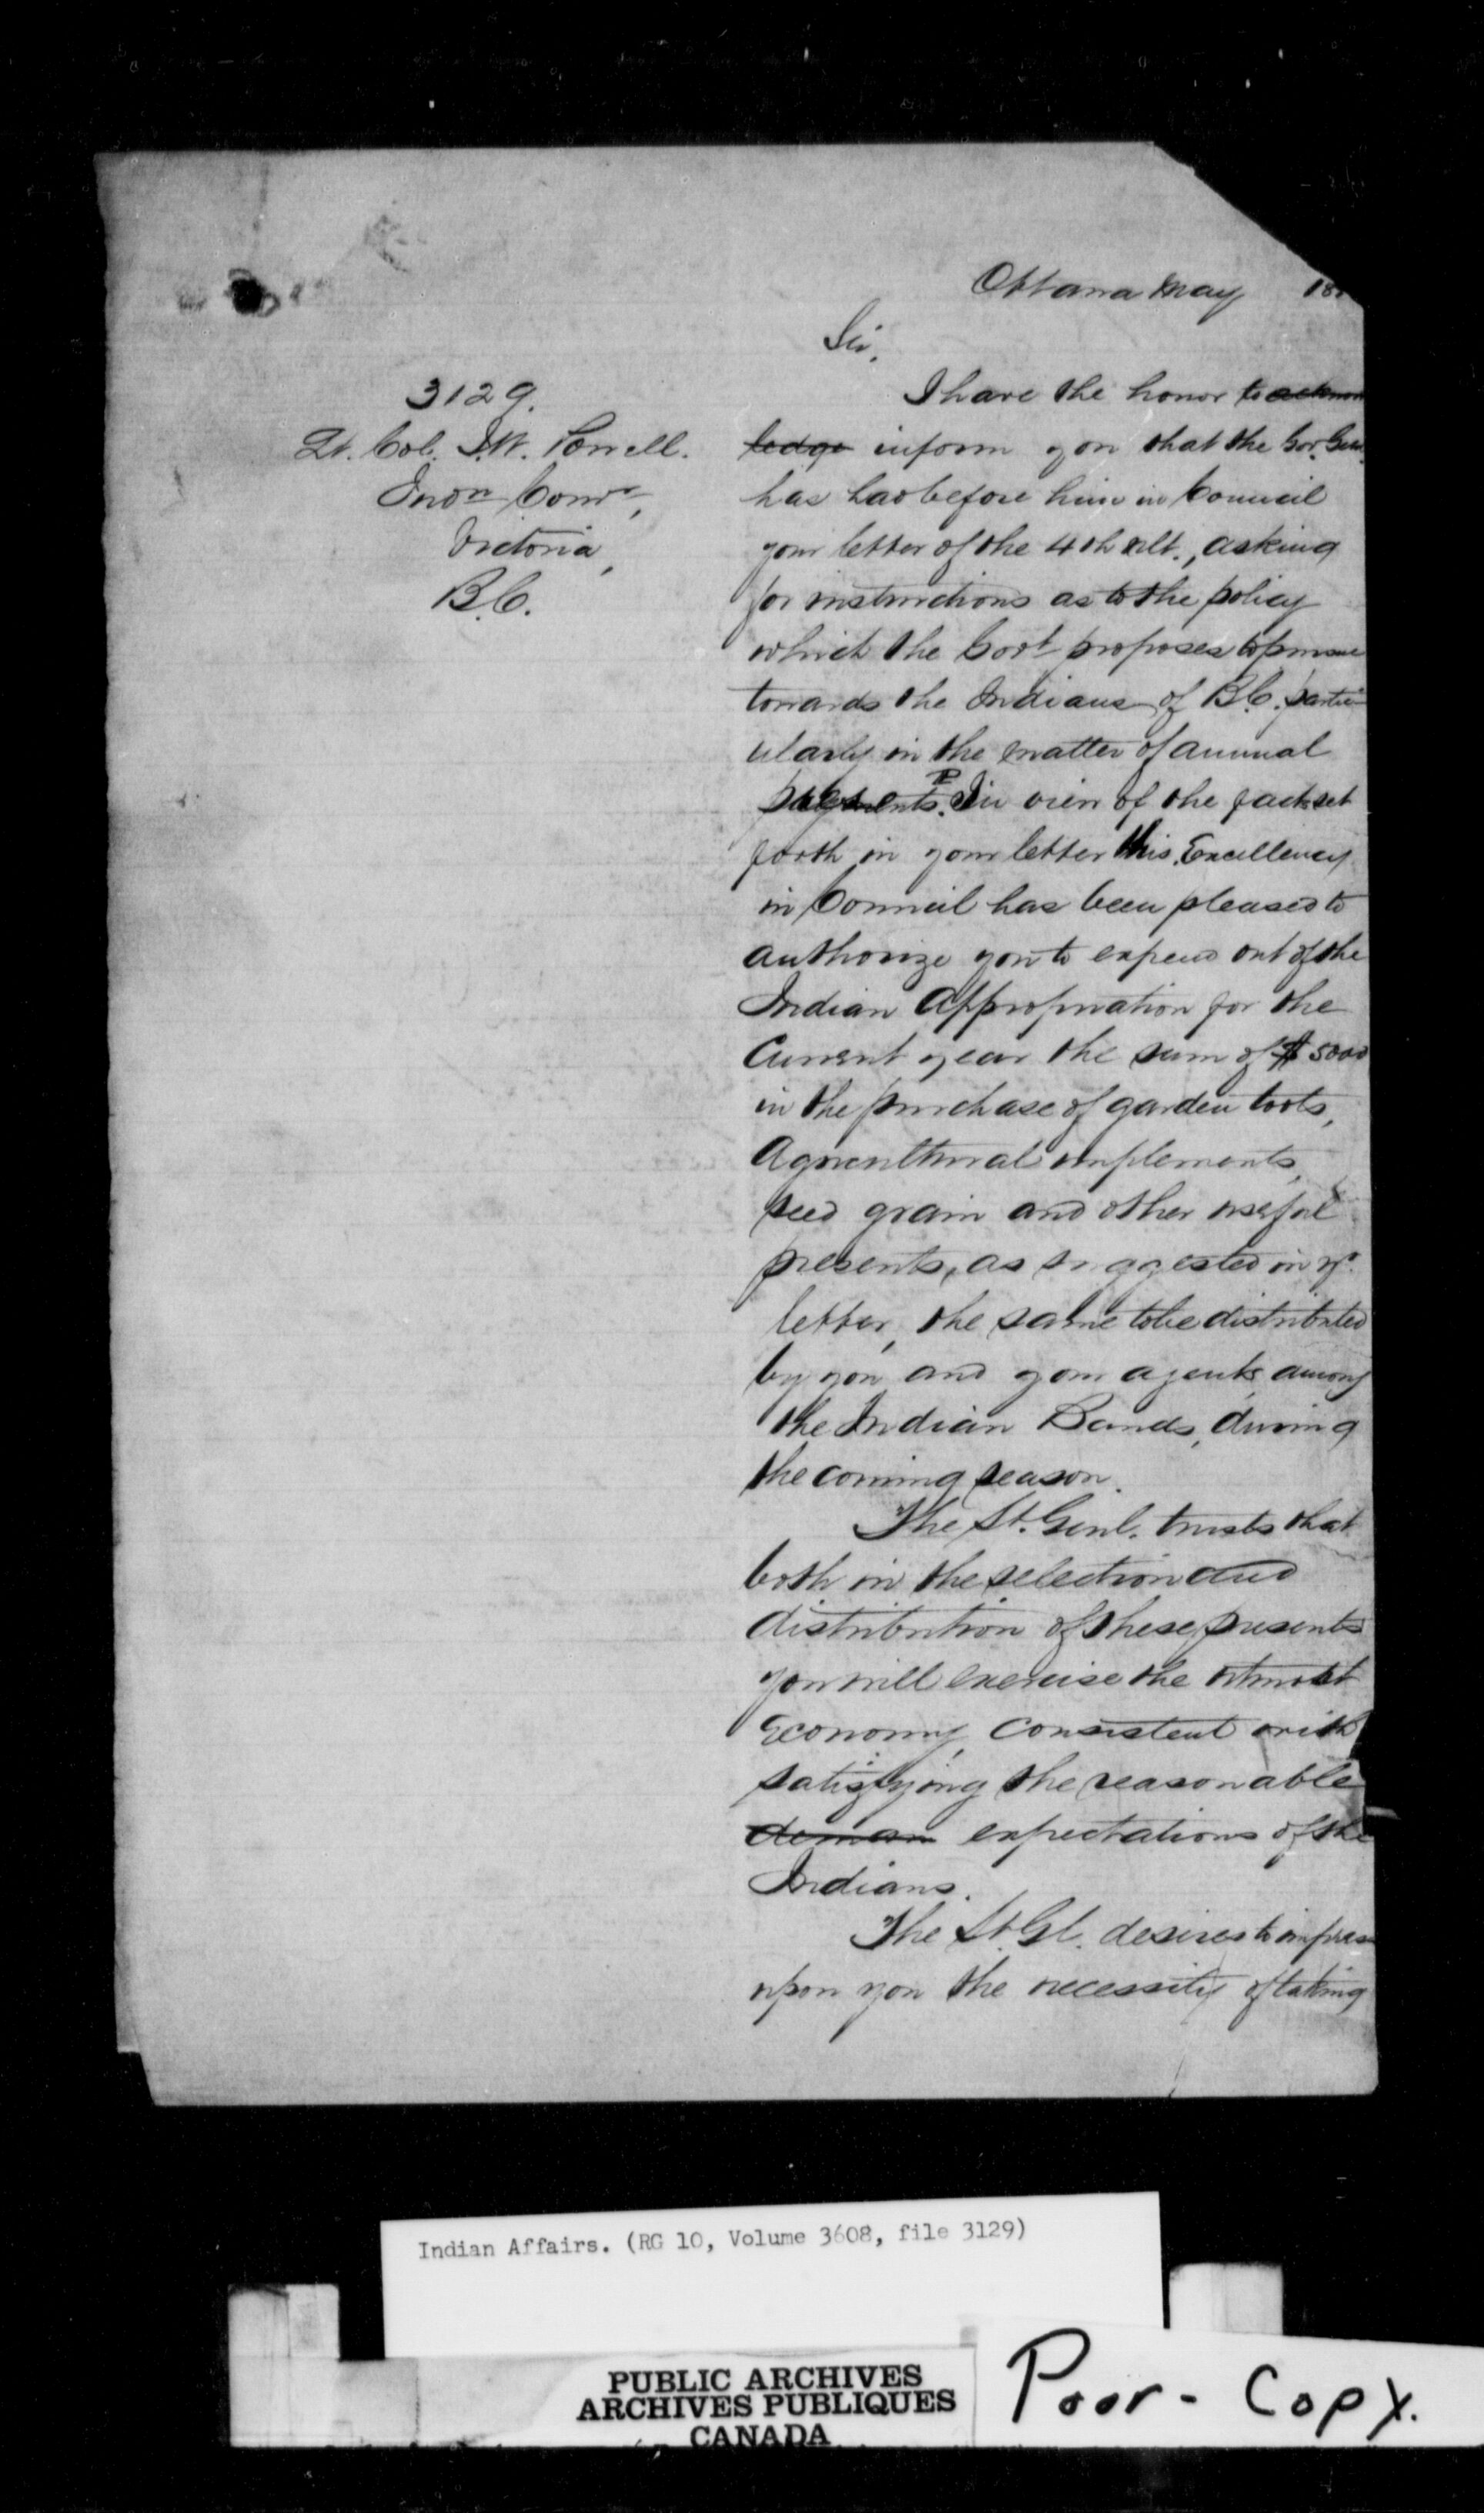 Ottawa May 18
Sir,
3129.
Lt. Col. I.W. Powell.
Indn Comr,
Victoria,
B.C.
I have the honor to acknow
ledge inform you that the Gov. Gen.
has had before him in Council
your letter of the 4th ult., asking
for instructions as to the policy
which the Govt proposes to pursue
towards the Indians of B.C. partic
ularly in the matter of annual
presents. In view of the facts set
forth in your letter His Excellency
in Council has been pleased to
authorize you to expend out of the
Indian Appropriation for the
Current year the sum of $5000
in the purchase of garden tools,
Agricultural implements,
seed grain and other useful
presents, as suggested in yr
letter, the same to be distributed
by you and your agents among
the Indian Bands, during
the coming season.
The Supt. Genl. trusts that
both in the selection and
distribution of these presents
you will exercise the utmost
Economy, consistent with
satisfying the reasonable
deman expectations of the
Indians.
The St. Gl. desires to impress
upon you the necessity of taking
Indian Affairs. (RG 10, Volume 3608, file 3129)
PUBLIC ARCHIVES
ARCHIVES PUBLIQUES
CANADA
Poor - Copy.